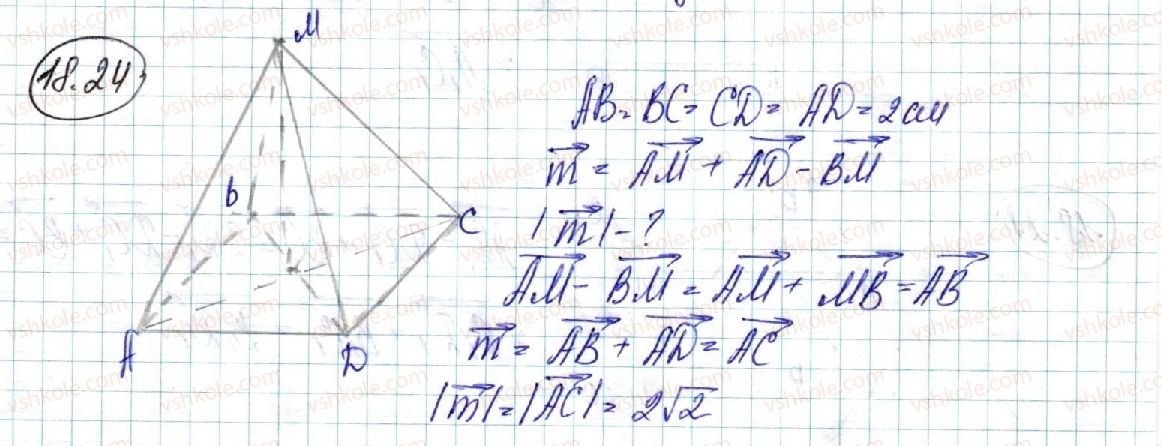 18.24
M
AB = BC = CD = AD = 2 см
\vec{m} = \vec{AM} + \vec{AD} - \vec{BM}
|\vec{m}| - ?
\vec{AM} - \vec{BM} = \vec{AM} + \vec{MB} = \vec{AB}
\vec{m} = \vec{AB} + \vec{AD} = \vec{AC}
|\vec{m}| = |\vec{AC}| = 2\sqrt{2}
b
C
A
D
vshkole.com